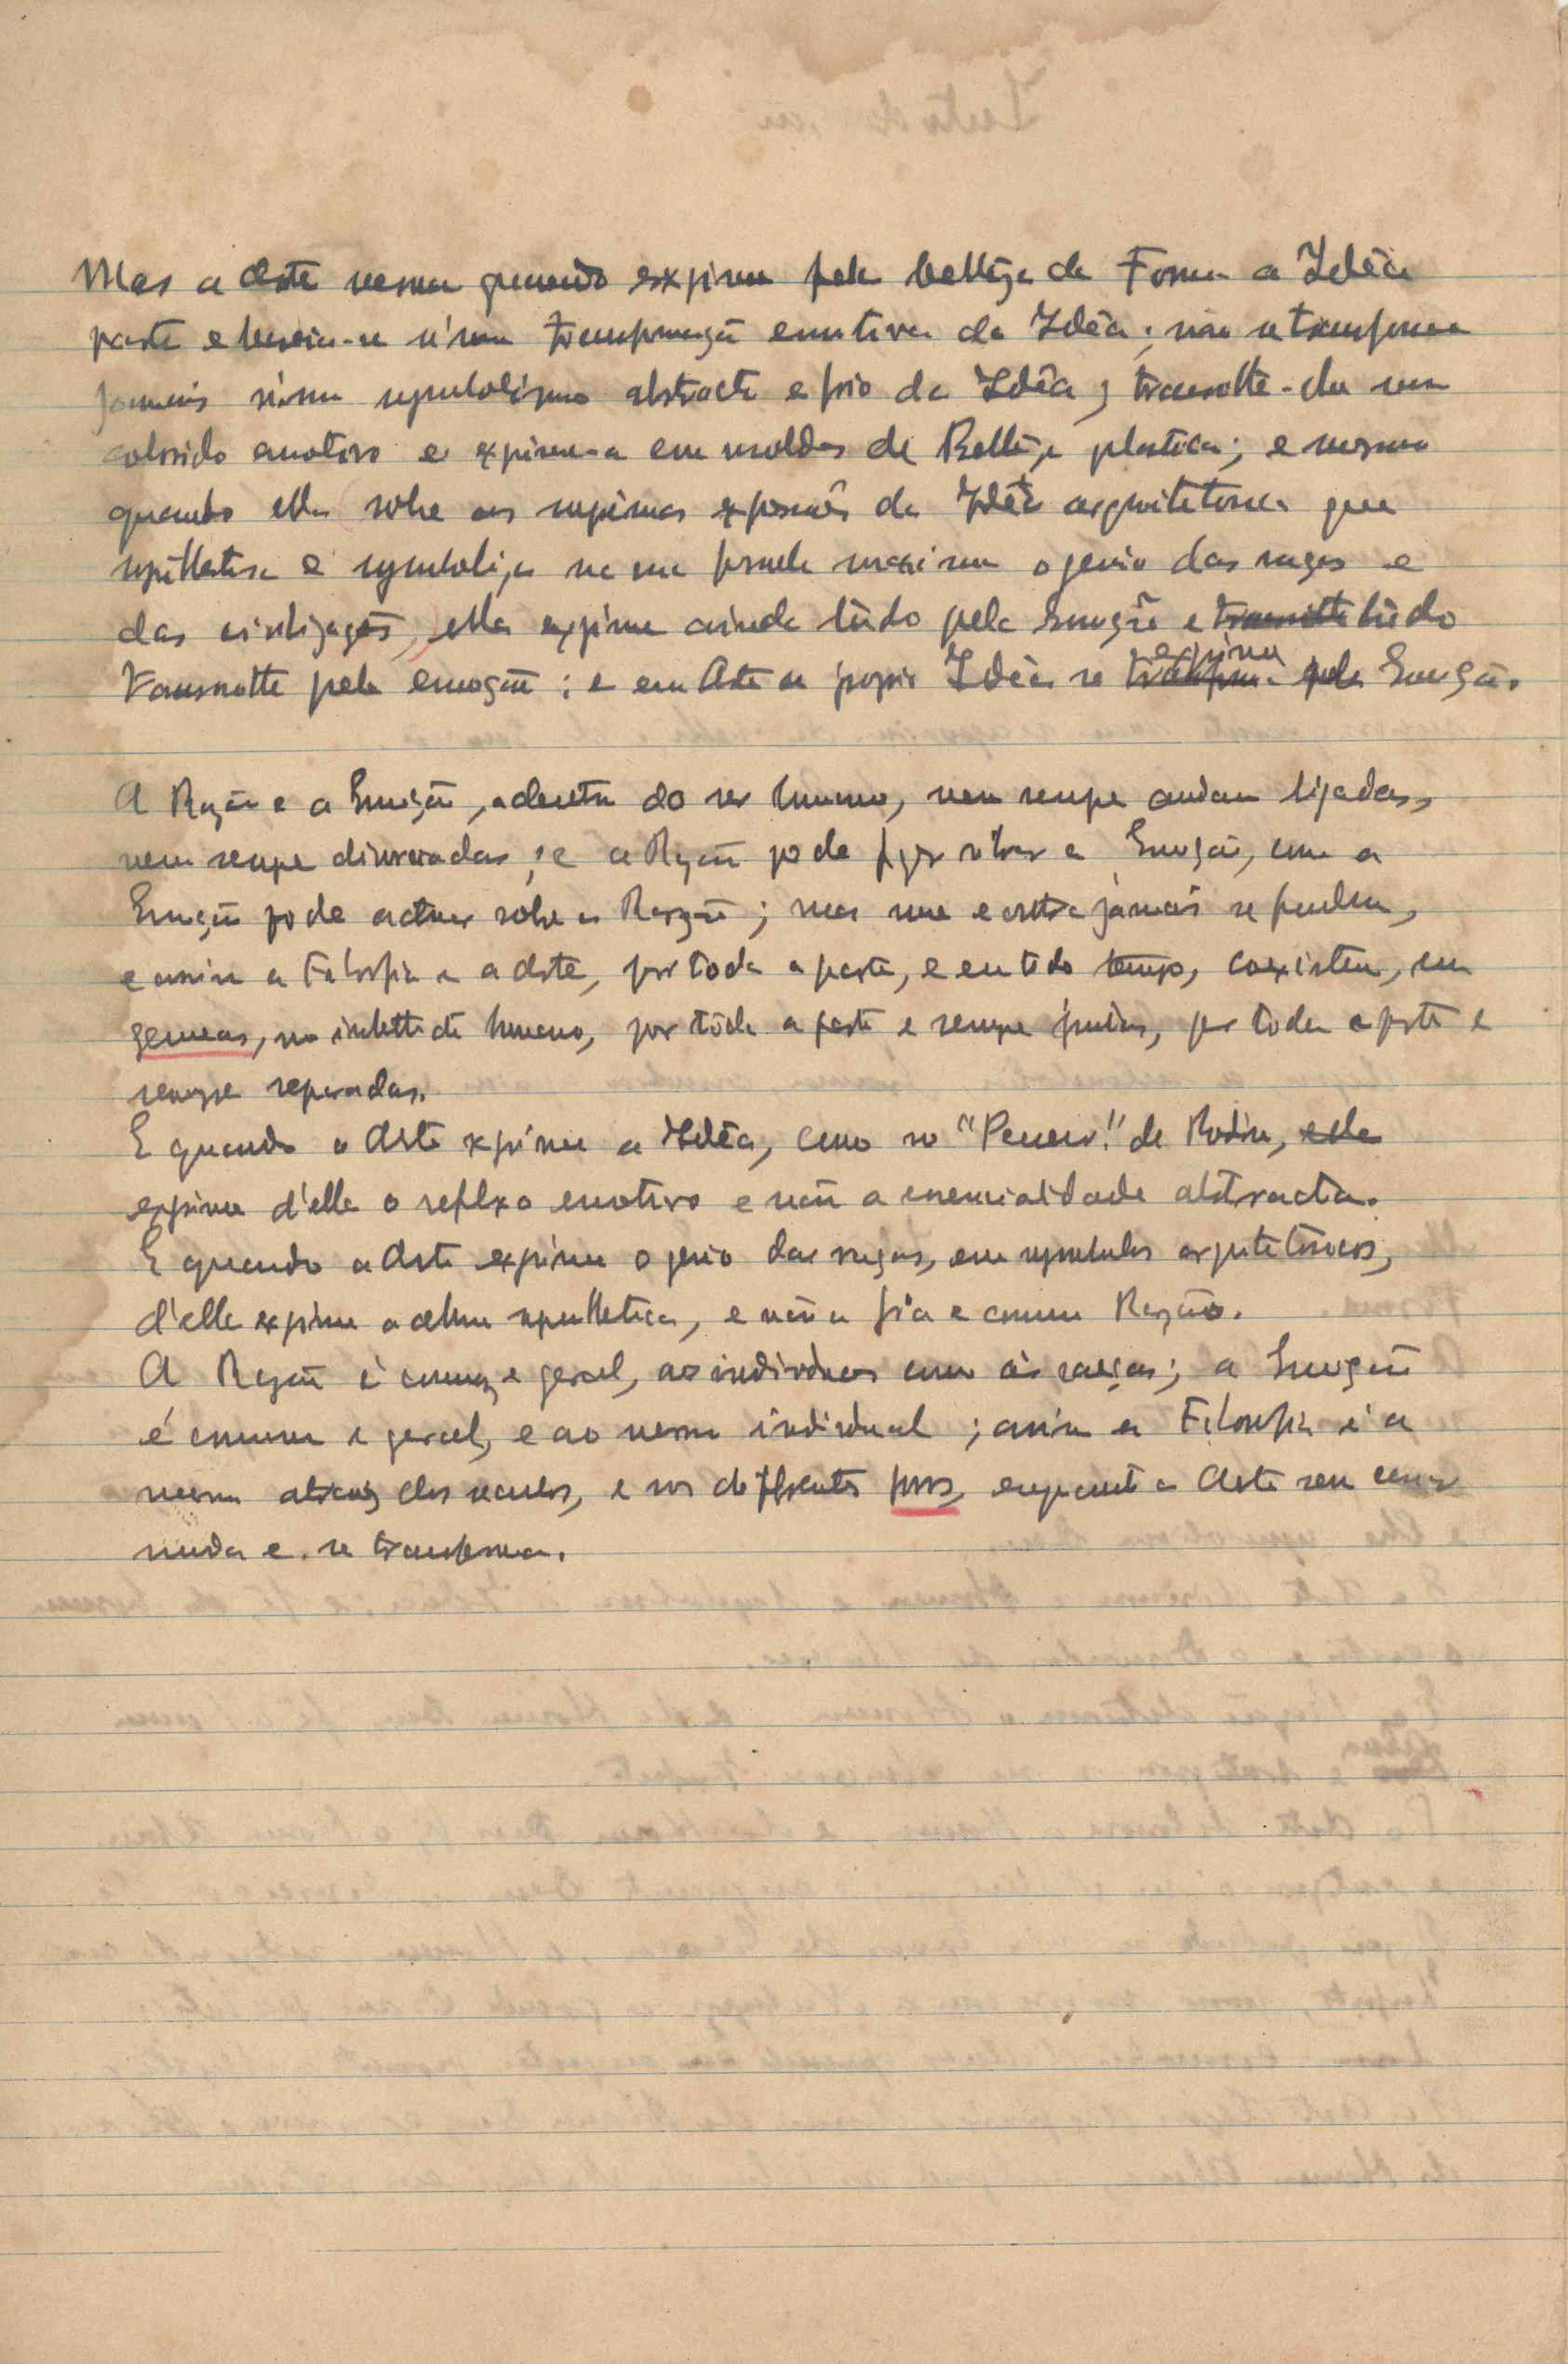 Mas a Arte mesmo quando exprime pela belleza da Forma a Idêa
parte e baseia-se n'uma transformação emotiva da Idêa; não se transforma
jamais n'um symbolismo abstracto e frio da Idêa; transmitte-lhe um
colorido emotivo e exprime-a em moldes de Belleza plastica; e mesmo
quando ella sobe ás supremas expressões da Idêa arquitetonica que
synthetisa e symbolisa na sua formula maxima o genio das raças e
das civilizações, ella exprime ainda tudo pela Emoção e tudo
transmitte pela emoção: e em Arte a propria Idêa se exprime pela Emoção.
A Razão e a Emoção, adentro do ser humano, nem sempre andam ligadas,
nem sempre divorciadas; e a Razão pode agir sobre a Emoção, como a
Emoção pode actuar sobre a Razão; mas uma e outra jamais se fundem,
e assim a Filosofia e a Arte, por toda a parte, e em todo tempo, coexistem, como
gemeas, no intellecto humano, por toda a parte e sempre juntas, por toda a parte e
sempre separadas.
E quando a Arte exprime a Idêa, como no "Penseur" de Rodin,
exprime d'ella o reflexo emotivo e não a essencialidade abstracta.
E quando a Arte exprime o genio das raças, em symbolos arquitetonicos,
d'elle exprime a alma synthetica, e não a fria e comum Razão.
A Razão é comum e geral, aos individuos como ás raças; a Emoção
é comum e geral, e ao mesmo individual; assim a Filosofia é a
mesma atravez dos seculos, e nos differentes povos, emquanto a Arte sem cessar
muda e se transforma.